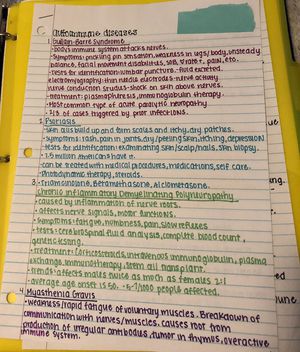 Autoimmune diseases
1. Guillain-Barre Syndrome
- body's immune system attacks nerves.
- symptoms: prickling pin sensation, weakness in legs/body, unsteady
balance, facial movement disabilities, pain, etc.
- tests for identification: lumbar puncture - fluid extracted.
electromyography - thin needle electrodes - nerve activity
nerve conduction studies - shock on skin above nerves.
- treatment: plasmapheresis, immunoglobulin therapy.
- most common type of acute paralytic neuropathy.
- 2/3 of cases triggered by prior infections.
2. Psoriasis
- skin cells build up and form scales and itchy, dry patches.
- symptoms: rash, pain in joints, dry/peeling skin, itching, depression
- tests for identification: examining skin/scalp/nails, skin biopsy.
- 7.5 million americans have it.
- can be treated with medical procedures, medications, self care.
Photodynamic therapy, steroids.
- Triamcinolone, Betamethasone, Alclometasone.
3. Chronic Inflammatory Demyelinating Polyneuropathy
- caused by inflammation of nerve roots.
- affects nerve signals, motor functions.
- symptoms: fatigue, numbness, pain, slow reflexes
- tests: cerebrospinal fluid analysis, complete blood count,
genetic testing.
- treatment: corticosteroids, intravenous immunoglobulin, plasma
exchange, immunotherapy, stem cell transplant.
- trends: affects males twice as much as females 2:1
- average age onset is 50. people affected.
4. Myasthenia Gravis
- weakness/rapid fatigue of voluntary muscles. Breakdown of
communication with nerves/muscles. causes root from
production of irregular antibodies, tumor in thymus, overactive
immune system.